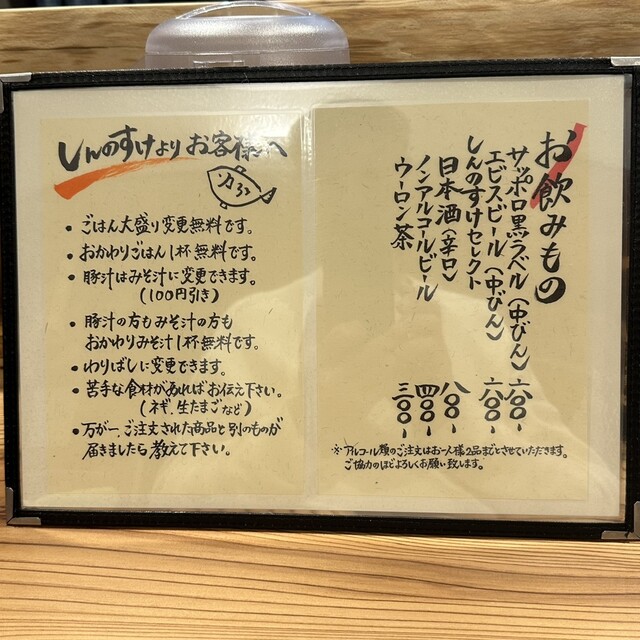 しんのすけより お客様へ
・ごはん大盛り変更無料です。
・おかわりごはん1杯無料です。
・豚汁はみそ汁に変更できます。
(100円引き)
・豚汁の方もみそ汁の方も
おかわりみそ汁1杯無料です。
・わりばしに変更できます。
・苦手な食材があればお伝え下さい。
(ネギ、生たまごなど)
・万が一、ご注文された商品と別のものが
届きましたら教えて下さい。
お飲みもの
サッポロ黒ラベル(中びん) 六〇〇-
エビスビール(中びん) 六〇〇-
しんのすけセレクト
日本酒(辛口) 八〇〇-
ノンアルコールビール 四〇〇-
ウーロン茶 三〇〇-
※アルコール類のご注文はお一人様2品までとさせていただきます。
ご協力のほどよろしくお願い致します。